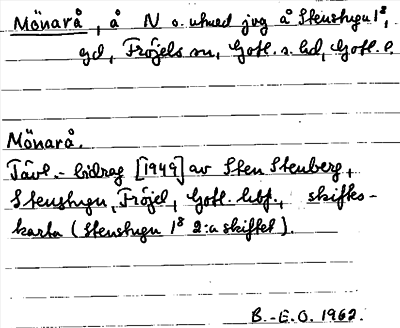 Mönarå, å N o. utmed jvg å Stenstugu 1⁸,
gd, Fröjels sn, Gotl. s. hd, Gotl. l.
Mönarå.
Tävl.-bidrag [1949] av Sten Stenberg,
Stenstugu, Fröjel, Gotl. tibf., skiftes-
karta (Stenstugu 1⁸ 2:a skiftet).
B.-E.O. 1962.